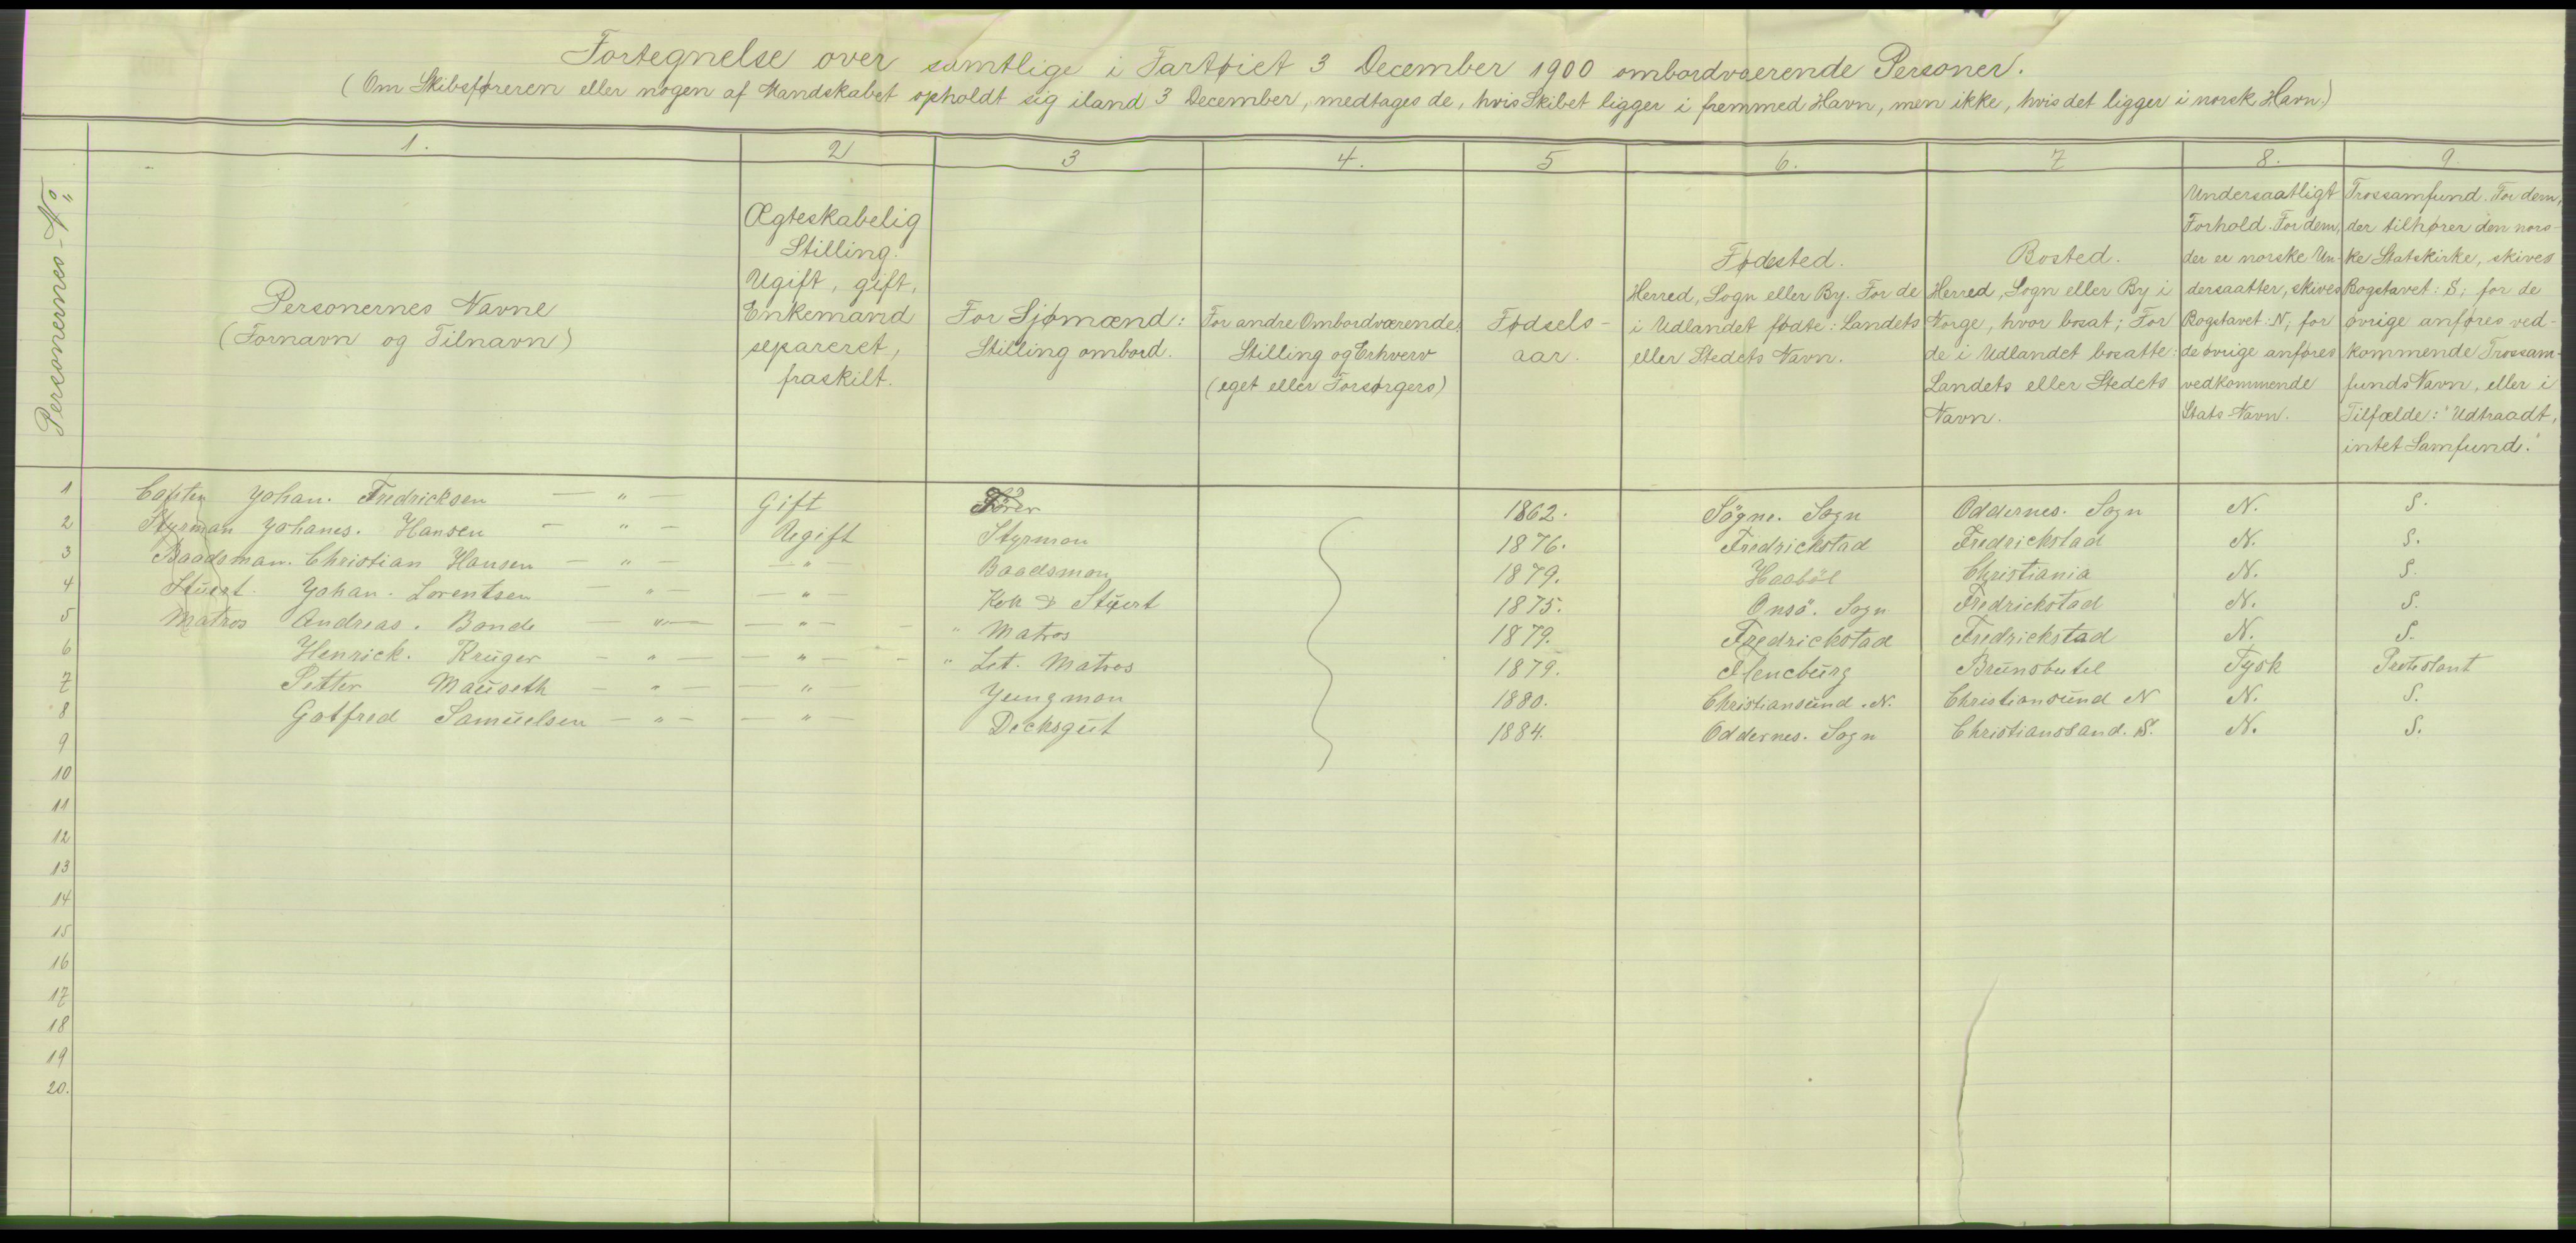 Fortegnelse over samtlige i Fartøiet 3 December 1900 ombordværende Personer.
(Om Skibsføreren eller nogen af Mandskabet opholdt sig iland 3 December, medtages de, hvis Skibet ligger i fremmed Havn, men ikke, hvis det ligger i norsk Havn.)
Personernes - No.
1.
2
3
4.
5
6.
7
8.
9.
Personernes Navne
(Fornavn og Tilnavn)
Ægteskabelig
Stilling.
Ugift, gift,
Enkemand
separeret,
fraskilt.
For Sjømænd:
Stilling ombord.
For andre Ombordværende:
Stilling og Erhverv
(eget eller Forsørgers)
Fødsels-
aar.
Fødested.
Herred, Sogn eller By. For de
i Udlandet fødte: Landets
eller Stedets Navn.
Bosted.
Herred, Sogn eller By i
Norge, hvor bosat; For
de i Udlandet bosatte:
Landets eller Stedets
Navn.
Undersaatligt
Forhold. For dem,
der er norske Un-
dersaatter, skives
Bogstavet: N; for
de øvrige anføres
vedkommende
Stats-Navn.
Trossamfund. For dem,
der tilhører den nors-
ke Statskirke, skives
Bogstavet: S; for de
øvrige anføres ved-
kommende Trossam-
funds Navn, eller i
Tilfælde: "Udtraadt,
intet Samfund."
1 Capten Johan. Fredricksen — " — Gift Fører 1862. Sögne. Sogn Oddernes. Sogn N. S.
2 Styrman Johanes. Hansen — " — Ugift Styrman 1876. Fredrickstad Fredrickstad N. S.
3 Baadsman. Christian Hansen — " — — " — Baadsman 1879. Haaböl Christiania N. S.
4 Stuert. Johan. Lorentsen — " — — " — Kok & Stuert 1875. Onsö. Sogn Fredrickstad N. S.
5 Matros Andreas. Bonde — " — — " — " Matros 1879. Fredrickstad Fredrickstad N. S.
6 Henrick. Krüger — " — — " — " Let. Matros 1879. Flencburg Brunsbutel Tysk Protestant
7 Petter Mauseth — " — — " — Jungman 1880. Christiansund. N. Christiansund N N. S.
8 Gotfred Samuelsen — " — — " — Decksgut 1884. Oddernes. Sogn Christianssand. S. N. S.
9
10
11
12
13
14
15
16
17
18
19
20.